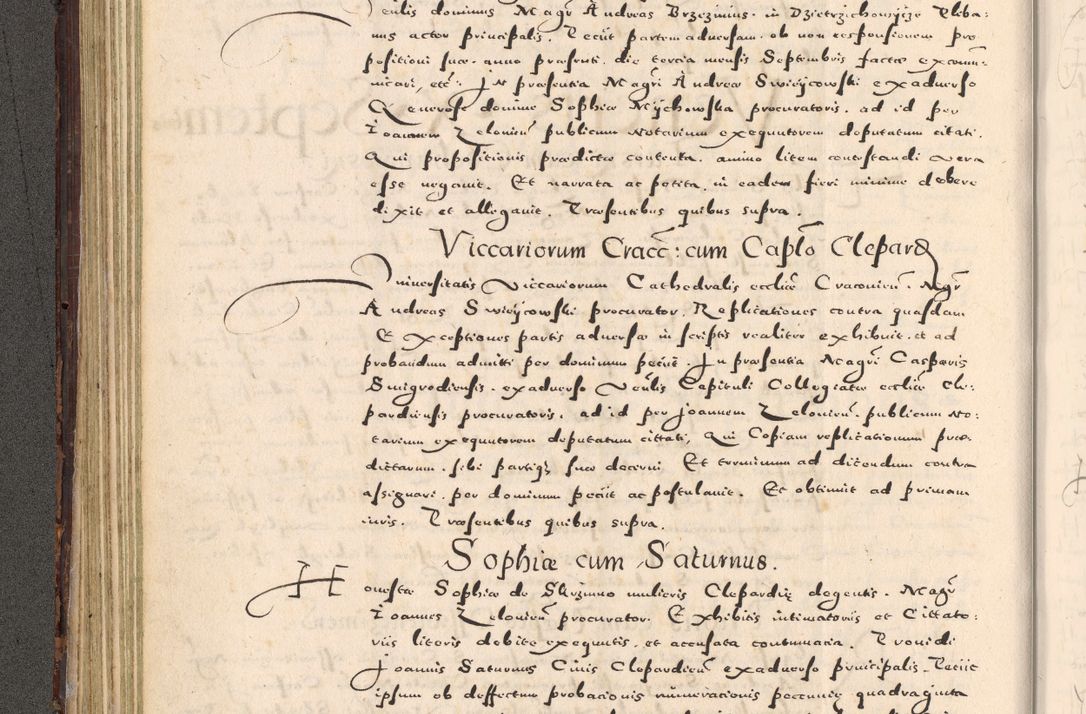 enlis dominus Magr Andreas Brzezinius in Dzietrzichowycze Pleba:
nus actor principalis. Peciit partem adversam ob non responsionem pro
positioni suæ anno præsenti die tercia mensis Septembris factæ excomu:
nicari, etc: In præsentia Magri Andreæ Swieÿcowski exadverso
Generosæ dominæ Sophiæ Mÿchowska procuratoris. ad id per
Joannem Zelonien publicum notarium exequutorem deputatum citati.
Qui propositionis prædictæ contenta. animo litem contestandi vera
esse negavit. Et narrata ac petita, in eadem fieri minime debere
dixit et allegavit. Præsentibus quibus supra.
Viccariorum Cracc: cum Caplo Clepard
Universitatis Viccariorum Cathedralis eccliæ Cracovien. Magr
Andreas Swieÿcowski procurator. Replicationes contra quasdam
Exceptiones partis adversæ in scriptis realiter exhibuit. et ad
probandum admitti per dominum peciit In præsentia Magri Casparis
Smigrodiensis. exadverso Venlis Capituli Collegiatæ eccliæ Cle:
pardiensis procuratoris. ad id per Joannem Zelonien. publicum no:
tarium exequutorem deputatum cittati, Qui Copiam replicationum præ
dictarum. sibi partiq suæ decerni Et terminum ad dicendum contra
assignari. per dominum peciit ac postulavit. Et obtinuit ad primam
iuris. Præsentibus quibus supra.
Sophiæ cum Saturnus.
Honestæ Sophiæ de Skrzinno mulieris Clepardiæ degentis. Magr
Joannes Zelonien procurator. Exhibitis intimatoriis et Cittato:
riis literis debite exequutis, et accusata contumacia. Providi
Joannis Saturnus Civis Clepardien exadverso principalis. Peciit
ipsum ob deffectum probacionis numeracionis peccuniæ quadraginta